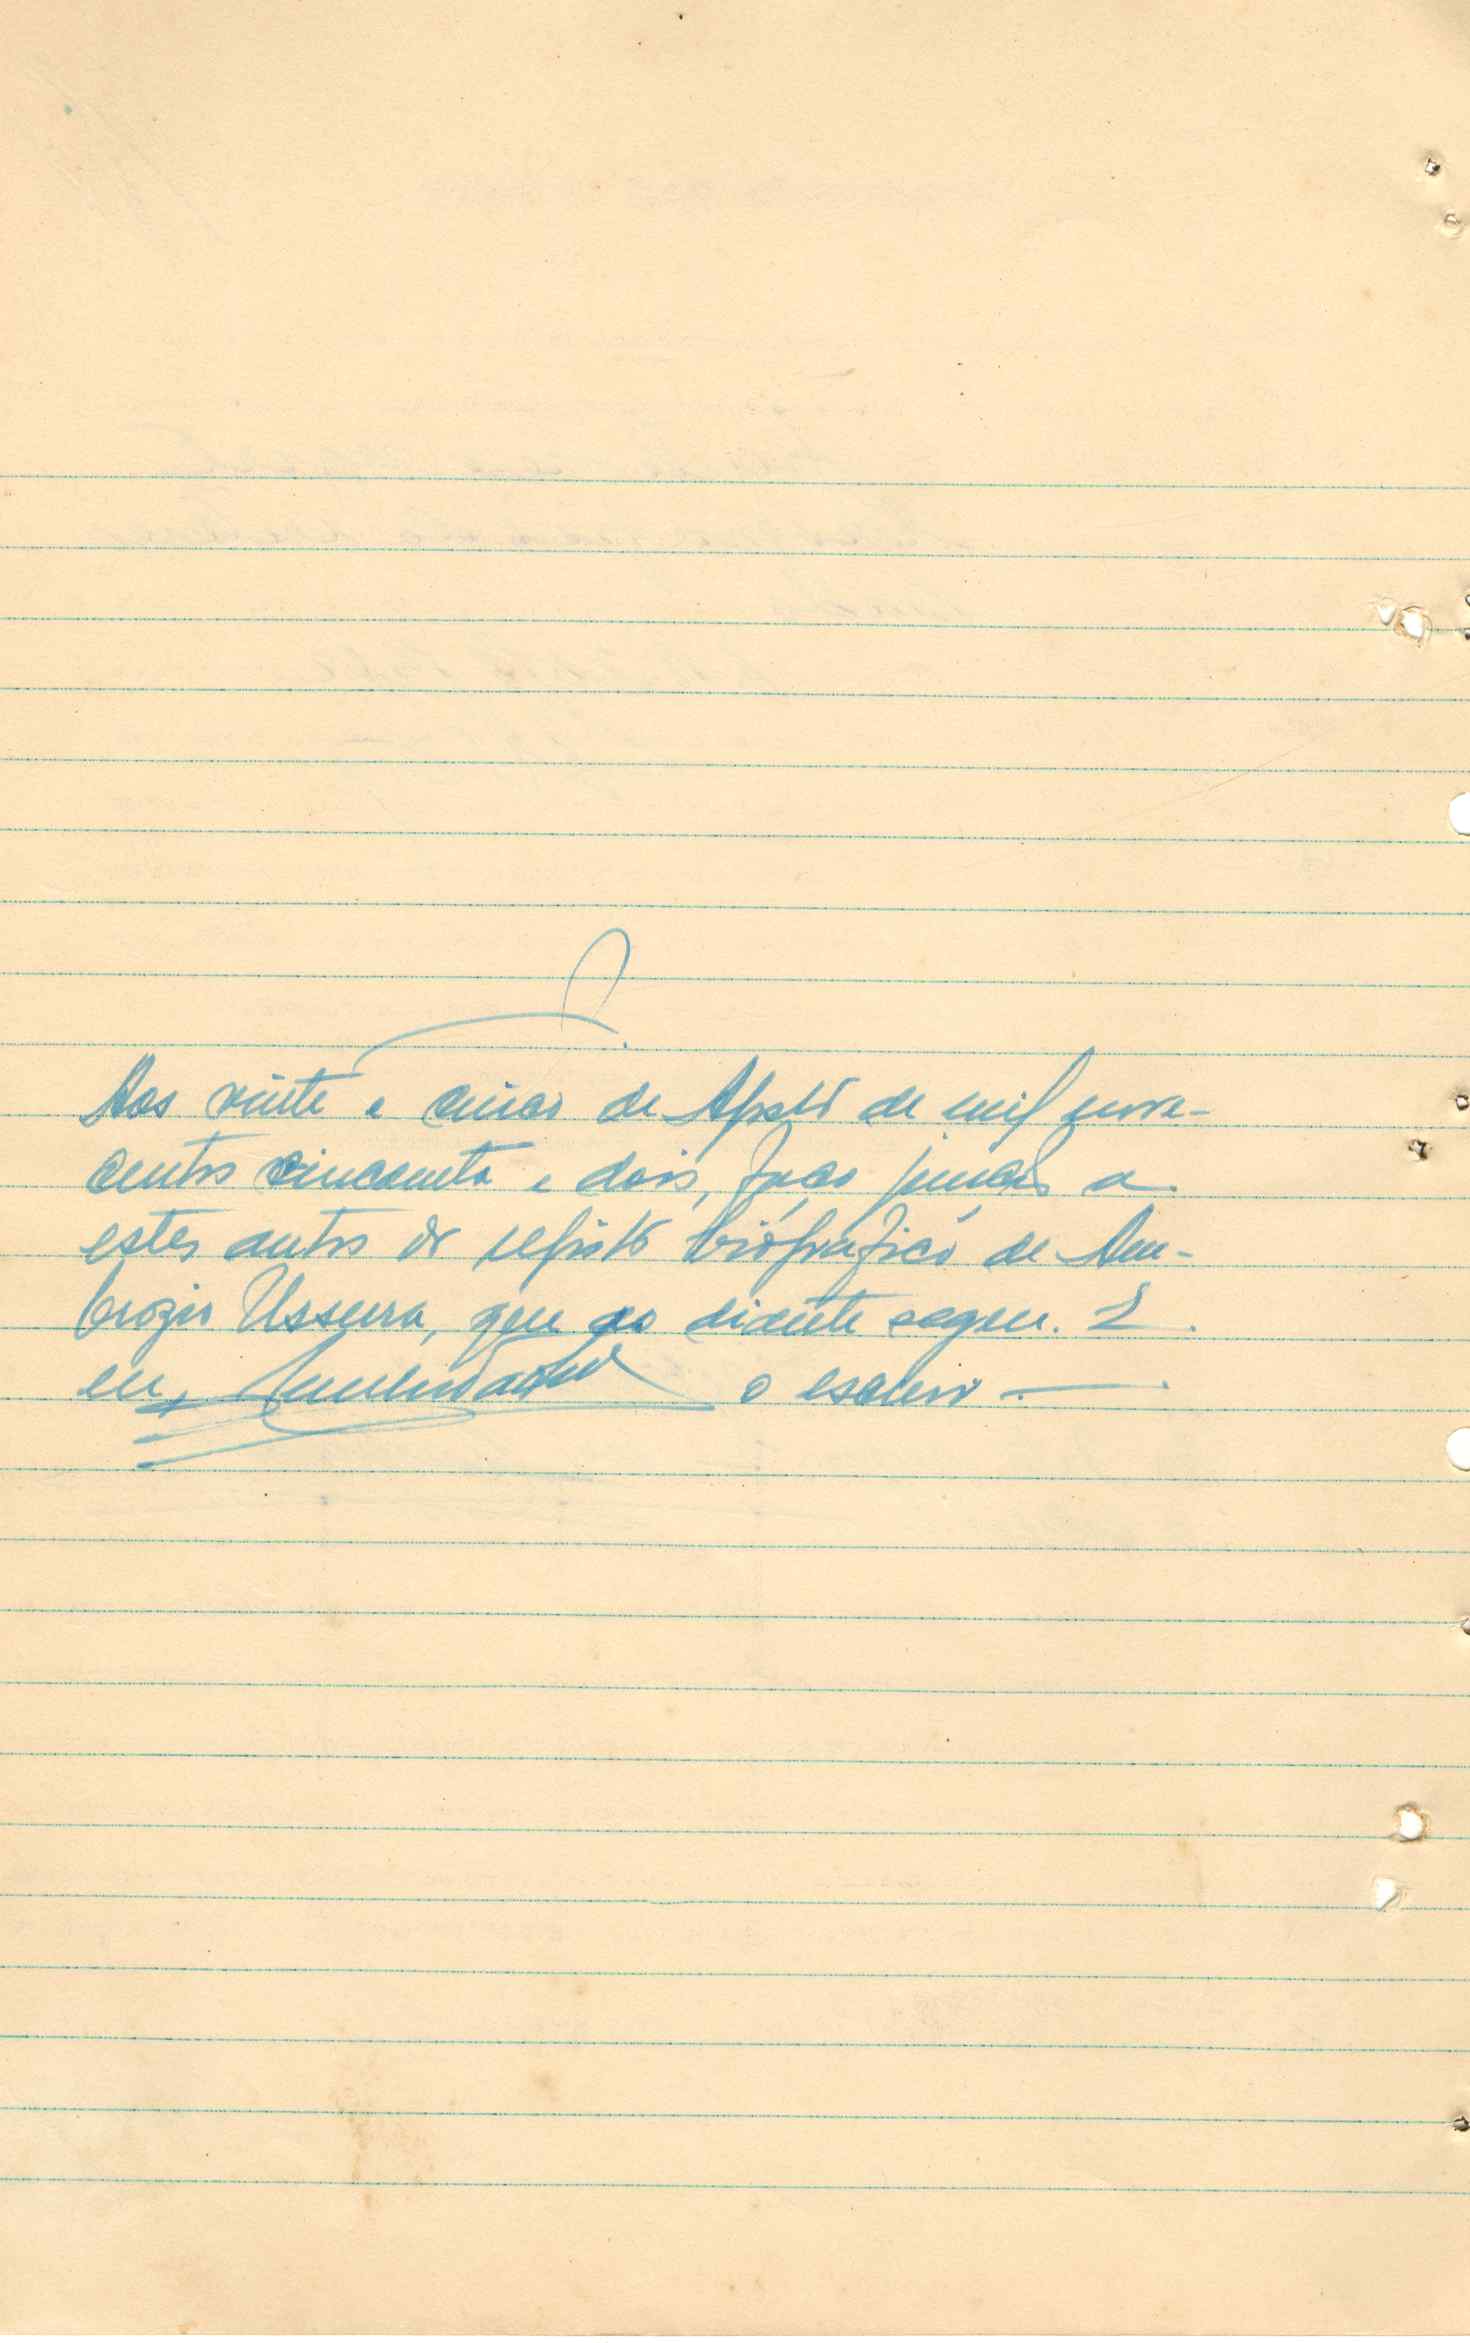 Aos vinte e cinco de Agosto de mil nove-
centos cincoenta e dois, faço juncão a
estes autos do registo biográfico de Am-
brozio Ussurra, que ao diante segue. E
eu, o escrevi